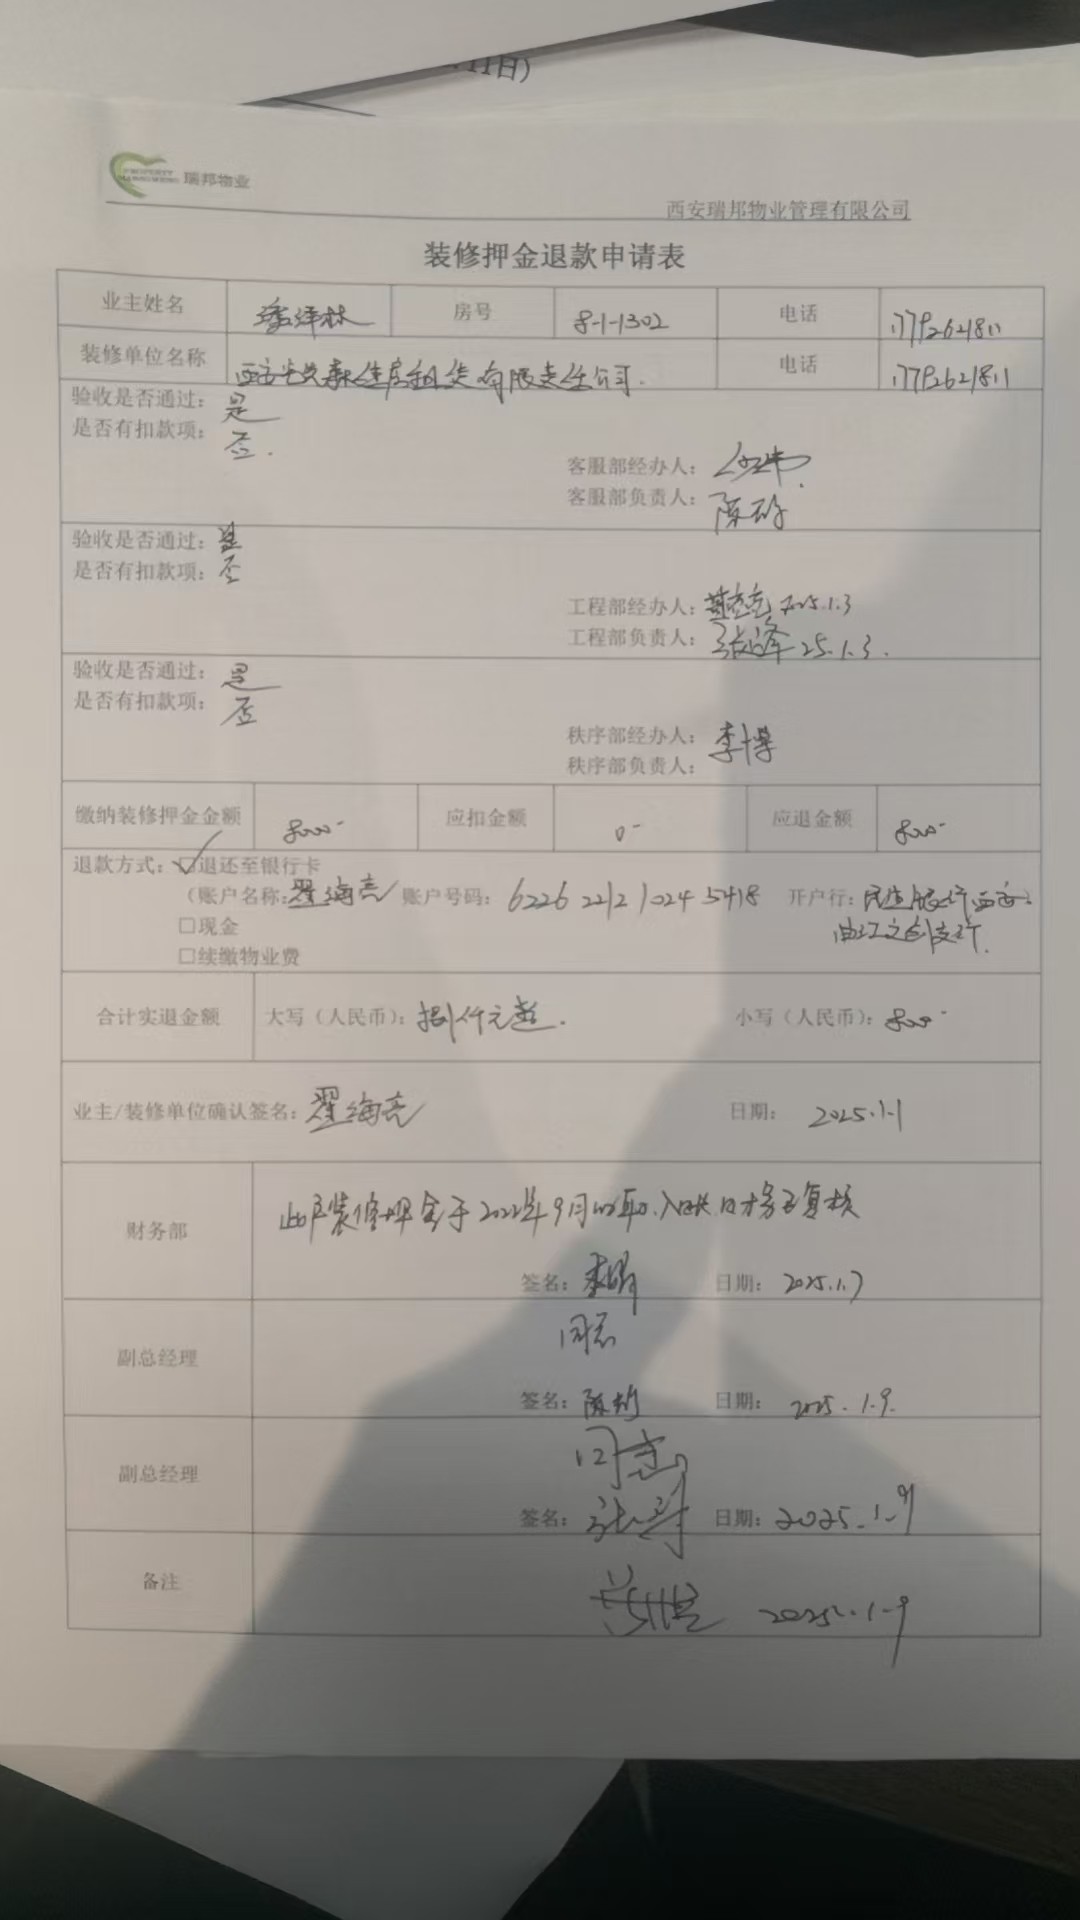 11日)
PROPERTY
瑞邦物业
西安瑞邦物业管理有限公司
装修押金退款申请表
业主姓名 潘泽林 房号 8-1-1302 电话 17792621811
装修单位名称 住房租赁有限责任公司. 电话 17792621811
验收是否通过: 是
是否有扣款项: 否.
客服部经办人:
客服部负责人: 陈
验收是否通过: 是
是否有扣款项: 否
工程部经办人: 2025.1.3
工程部负责人: 张 25.1.3.
验收是否通过: 是
是否有扣款项: 否
秩序部经办人: 李博
秩序部负责人:
缴纳装修押金金额 8000- 应扣金额 0- 应退金额 8000-
退款方式: ☑退还至银行卡
(账户名称: 翟海亮 账户号码: 6226 2212 1024 5418 开户行: 民生银行西安
曲江文创支行.
□现金
□续缴物业费
合计实退金额 大写(人民币): 捌仟元整. 小写(人民币): 8000-
业主/装修单位确认签名: 翟海亮 日期: 2025.1.1
财务部 此户装修押金于2022年9月 收取.入账,财务已复核
签名: 日期: 2025.1.7
同意
副总经理
签名: 陈 日期: 2025.1.9.
同意
副总经理
签名: 张 日期: 2025.1.9
备注 2025.1.9